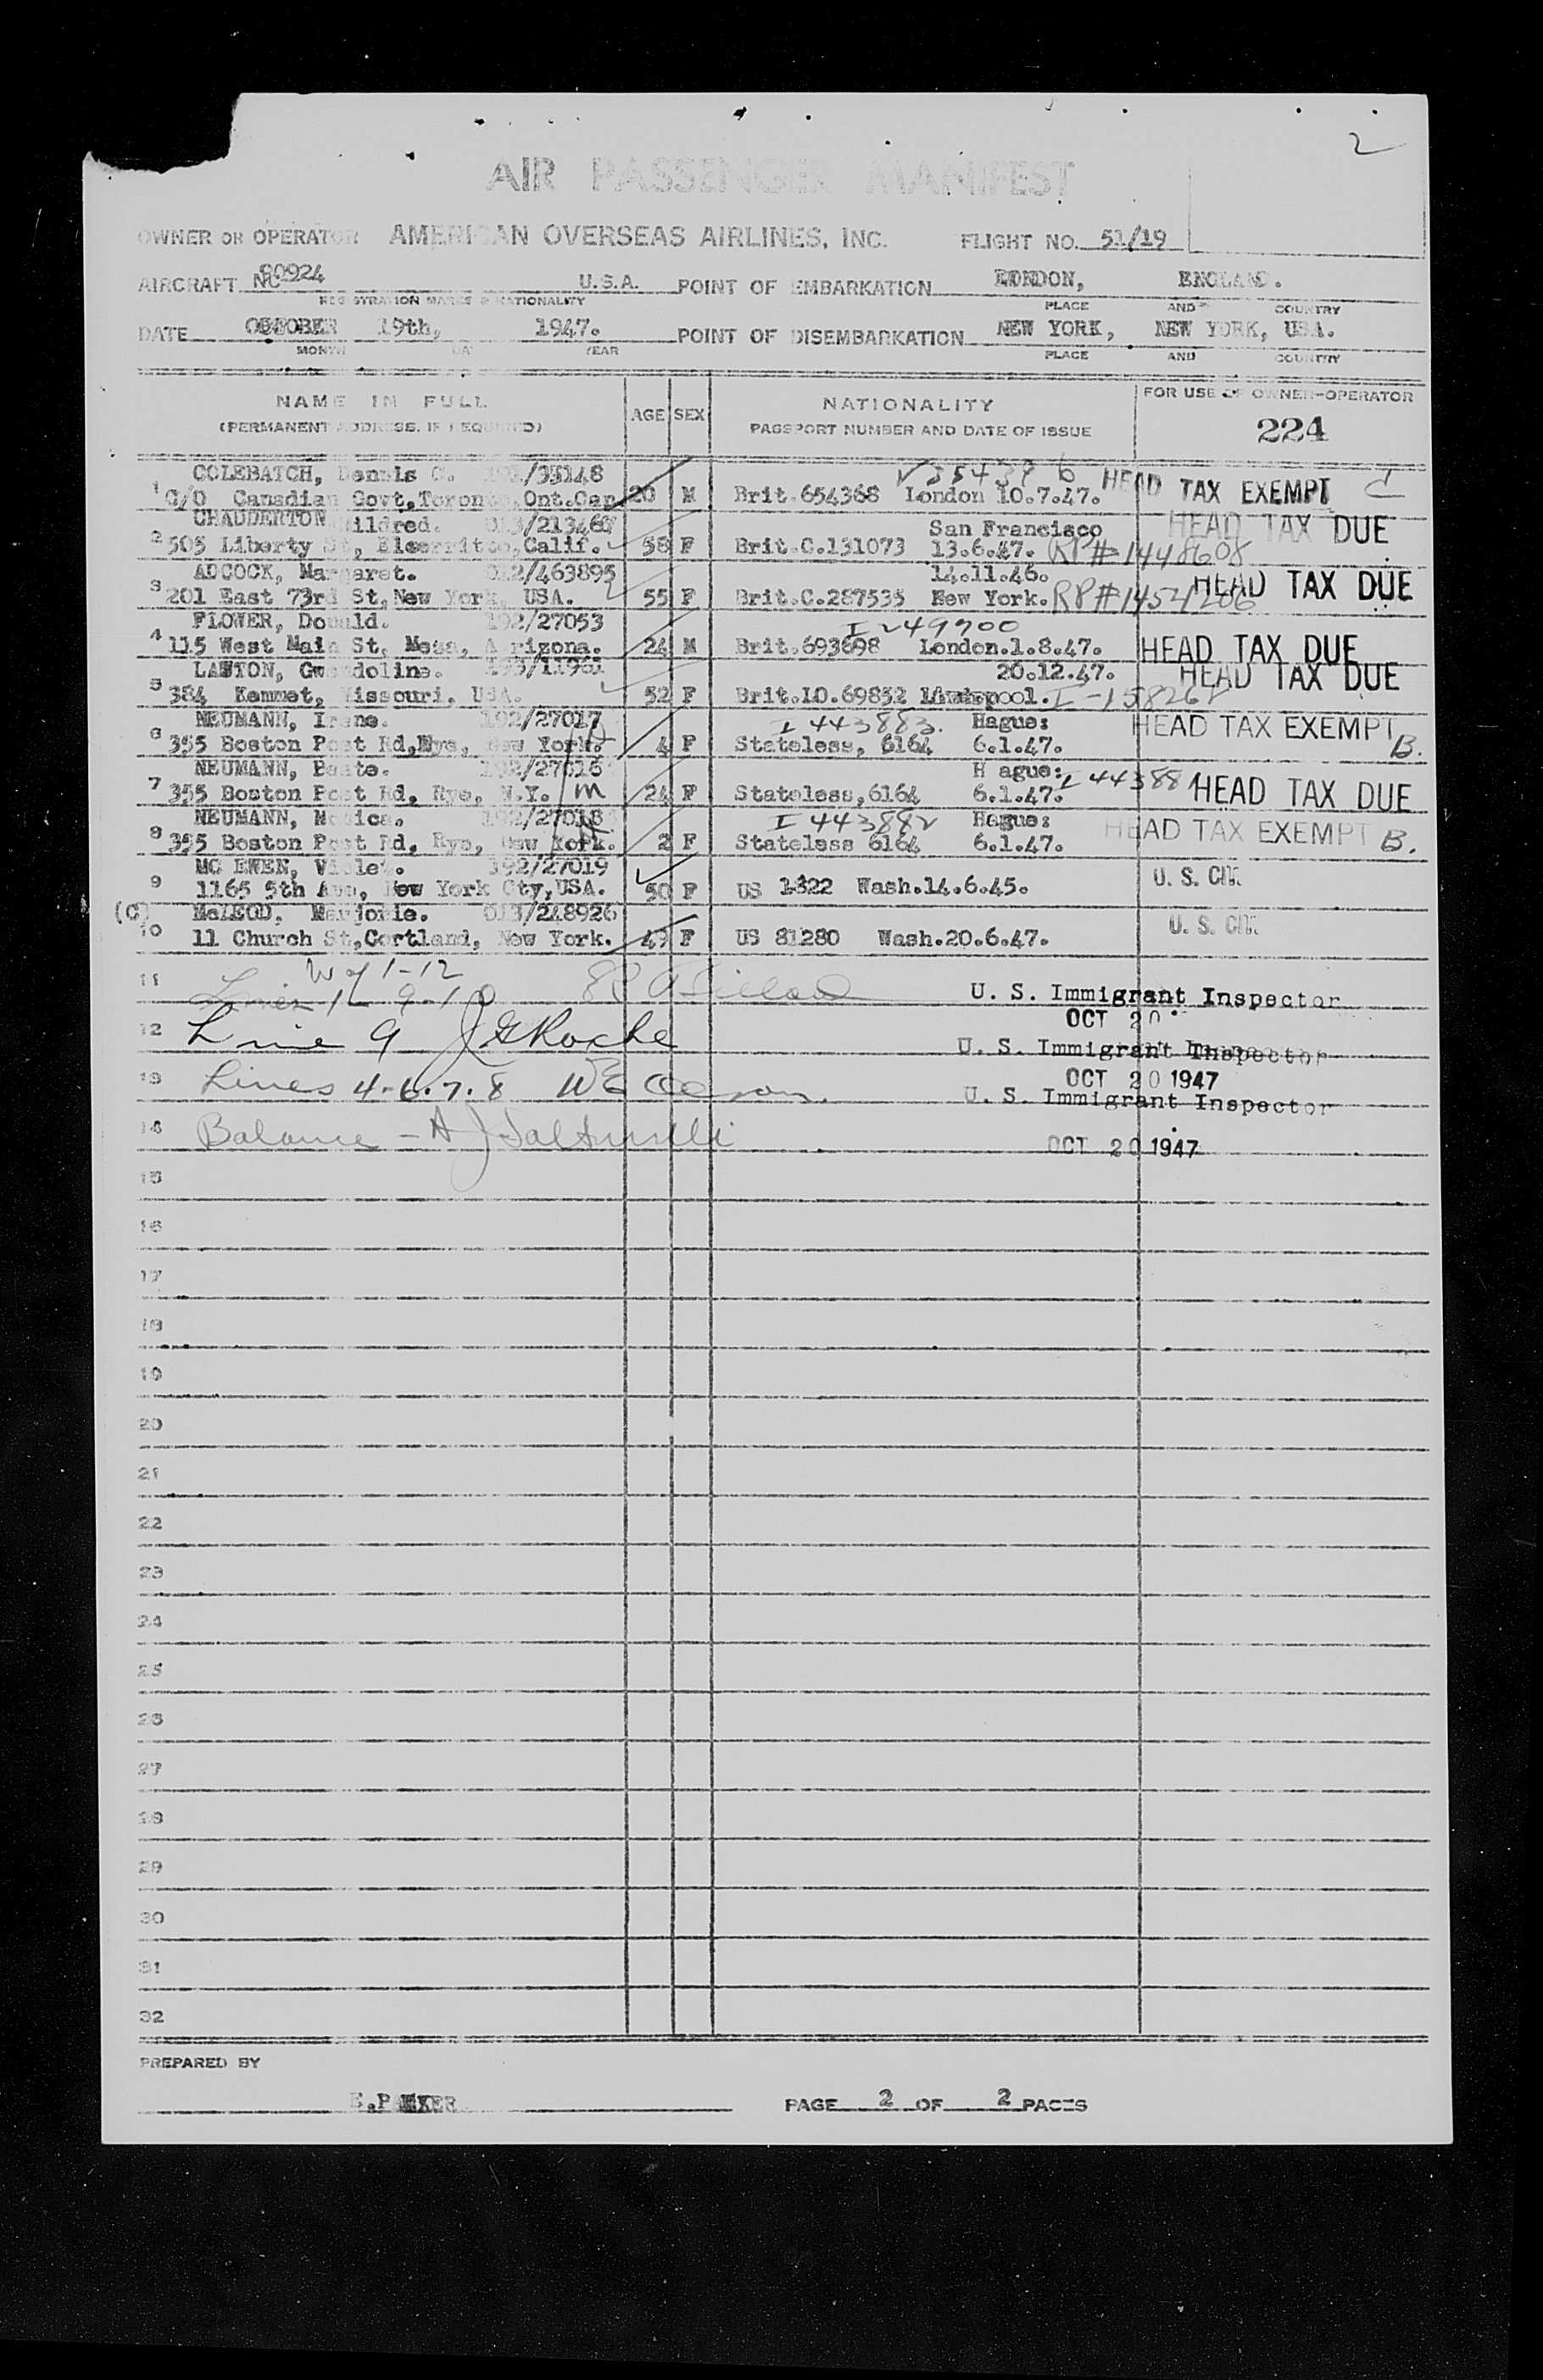 2
AIR PASSENGER MANIFEST
OWNER OR OPERATOR AMERICAN OVERSEAS AIRLINES, INC. FLIGHT NO. 51/19
AIRCRAFT NC 90924 U.S.A. POINT OF EMBARKATION LONDON, ENGLAND.
REGISTRATION MARKS & NATIONALITY PLACE AND COUNTRY
DATE OCTOBER 19th, 1947. POINT OF DISEMBARKATION NEW YORK, NEW YORK, USA.
MONTH DAY YEAR PLACE AND COUNTRY
NAME IN FULL
(PERMANENT ADDRESS, IF REQUIRED)
AGE SEX
NATIONALITY
PASSPORT NUMBER AND DATE OF ISSUE
FOR USE OF OWNER-OPERATOR
224
COLEBATCH, Dennis C. /33148
1 C/O Canadian Govt, Toronto, Ont. Can 20 M Brit. 654368 London 10.7.47. HEAD TAX EXEMPT
CHAUDERTON Mildred. 013/213467 San Francisco
2 505 Liberty St, Elcerritto, Calif. 58 F Brit.C.131073 13.6.47. RP# 1448608 HEAD TAX DUE
ADCOCK, Margaret. 012/463895 14.11.46.
3 201 East 73rd St, New York, USA. 55 F Brit.C.287535 New York. RP# HEAD TAX DUE
FLOWER, Donald. 192/27053 I 249900
4 115 West Main St, Mesa, Arizona. 24 M Brit.693698 London.1.8.47. HEAD TAX DUE
LAWTON, Gwendoline. 20.12.47.
5 384 Kemmet, Missouri. USA. 52 F Brit.LO.69852 Liverpool. HEAD TAX DUE
NEUMANN, Irene. 192/27017 I 443883. Hague:
6 355 Boston Post Rd, Rye, New York. 4 F Stateless, 6164 6.1.47. HEAD TAX EXEMPT B.
NEUMANN, Beate. 192/27016 H ague:
7 355 Boston Post Rd, Rye, N.Y. m 24 F Stateless, 6164 6.1.47. HEAD TAX DUE
NEUMANN, Monica. 192/27018 I 443882 Hague:
8 355 Boston Post Rd, Rye, New York. 2 F Stateless 6164 6.1.47. HEAD TAX EXEMPT B.
MC EWEN, Violet. 192/27019
9 1165 5th Ave, New York Cty, USA. 50 F US 1322 Wash.14.6.45. U. S. CIT.
(C) McLEOD. Marjorie. 013/248926
10 11 Church St, Cortland, New York. 49 F US 81280 Wash.20.6.47. U. S. CIT.
11 U. S. Immigrant Inspector
OCT 20
12 Line 9 J G Roche U. S. Immigrant Inspector
OCT 20 1947
13 Lines 4-6.7.8 U. S. Immigrant Inspector
14 Balance - A J OCT 20 1947
15
16
17
18
19
20
21
22
23
24
25
26
27
28
29
30
31
32
PREPARED BY
E. PARKER PAGE 2 OF 2 PAGES